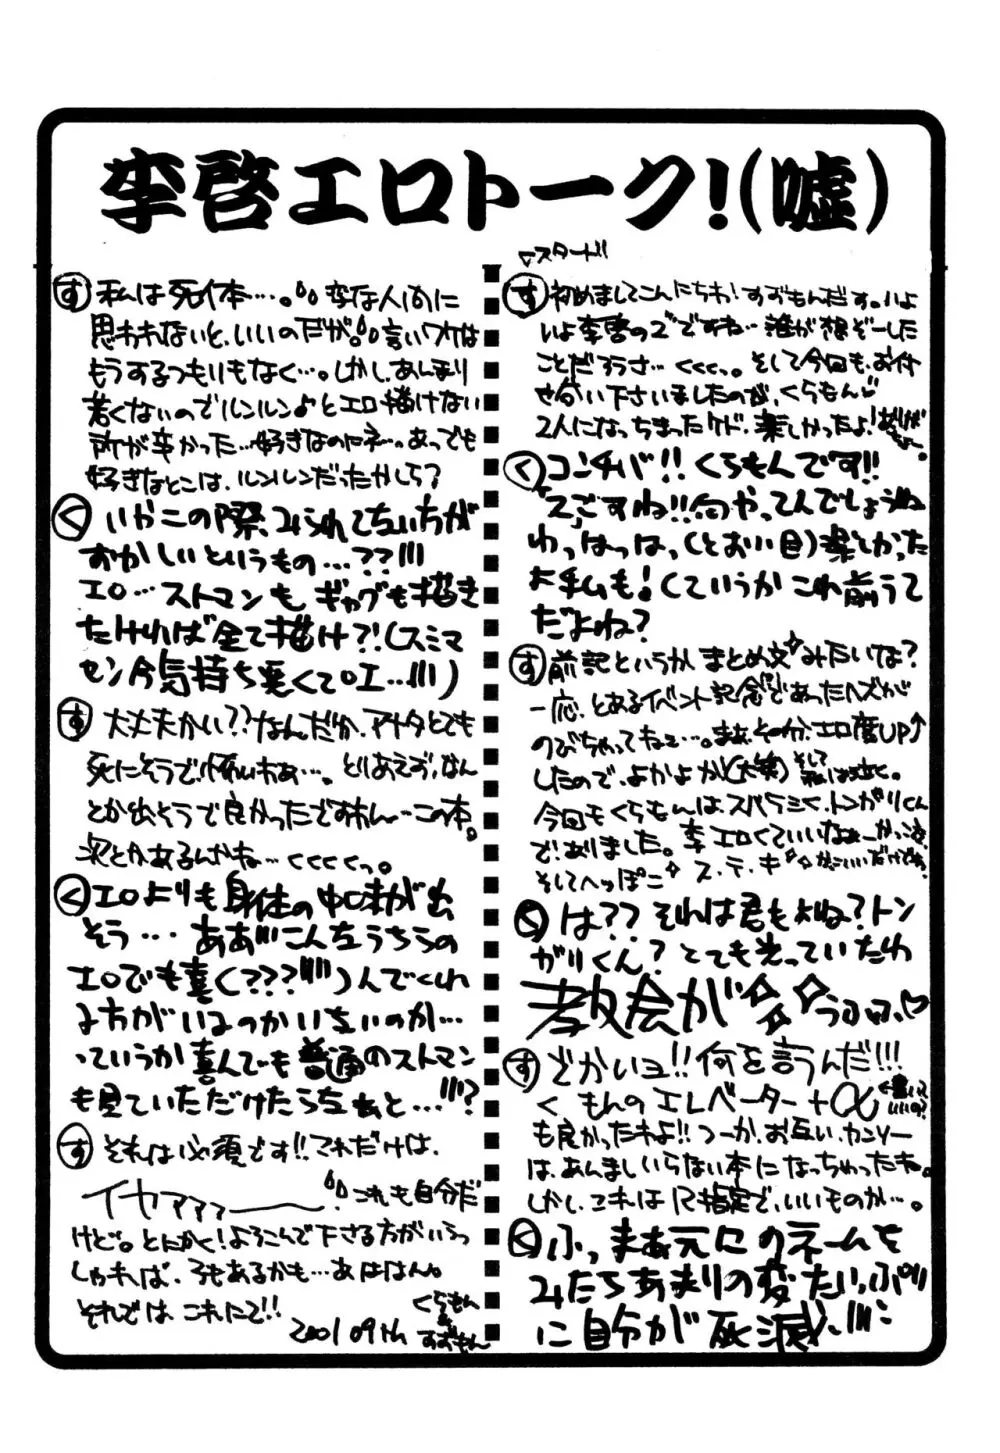 李啓エロトーク!(嘘)
▽スタート!!
す 初めましてこんにちわ!すずもんだす。いよ
いよ李啓の2ですね…誰が想ぞーした
ことだろうさ…くくくっ。そして今回も、お付
せ合い下さいましたのが、くらもん♡
2人になっちまったケド、楽しかったよ!
く コンチバ!!くらもんです!!
「2」ごすね!!何やってんでしょうね
わっはっはっ(とおい目)楽しかった
よ私も!(ていうかこれ前うて
だよね?
す 前記というかまとめ文みたいな?
一応、とあるイベント記念であったハズが
のびちゃってねぇ…。まぁ、その分、エロ度UP↑
したので、よかよか!(大笑)そして私は泣く。
今回もくらもんは、スバラミく、トンガリくん
で、ありました。李エロくていいなぁー
そしてへっぽこ ス・テ・キ
く は??それは君もよね?トン
ガリくん?とても光っていたわ
教会が うふふ♡
す どかいヨ!!何を言うんだ!!!
くらもんのエレベーター+α
も良かったわよ!!つーか、お互い、カンソー
は、あんましいらない本になっちゃったね。
しかし、これは12指定で、いいものか…。
く ふっまぁ元にのネームを
みたらあまりの変たいっぷり
に自分が死滅、!!!
す 私は死体…。変な人間に
思われないと、いいのだが。言いワケは
もうするつもりもなく…。しかし、あんまり
若くないのでルンルン♪とエロ描けない
所が辛かった…好きなのにネ…。あっでも
好きなとこは、ルンルンだったかしら?
く いやこの際、みられてないちが
おかしいというもの…??!!!
エロ…ストマンも、ギャグも描き
たければ全て描け?!(スミマ
セン今気持ち悪くて○エ…!!!)
す 大丈夫かい??なんだか、アナタとても
死にそうで怖いわぁ…。とりあえず、なん
とか出そうで良かったですわん…この本。
次とかあるんかね…くくくくっ。
く エロよりも身体の中味が出
そう…ああ!!!こんなうちらの
エロでも喜(???!!!!)んでくれ
る方がいるのかいないのか…
っていうか喜んでも普通のストマン
も見ていただけたらなぁと…!!!?
す それは必須です!!これだけは、
イヤァァァー!これも自分だ
けど。とにかく!よろこんで下さる方がいらっ
しゃれば、3もあるかも…あははん。
それでは これにて!!
2001 09th
くらもん
&
すずもん